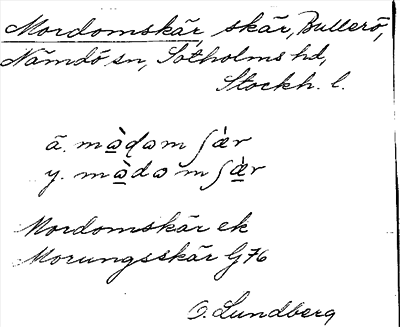 Mordomskär, skär, Bullerö,
Nämdö sn, Sotholms hd,
Stockh. l.
ä. mɷ̀ḍəm ʃæ̀r
y. mɷ̀də m ʃæ̀r
Mordomskär ek
Morungsskär G 76
O. Lundberg